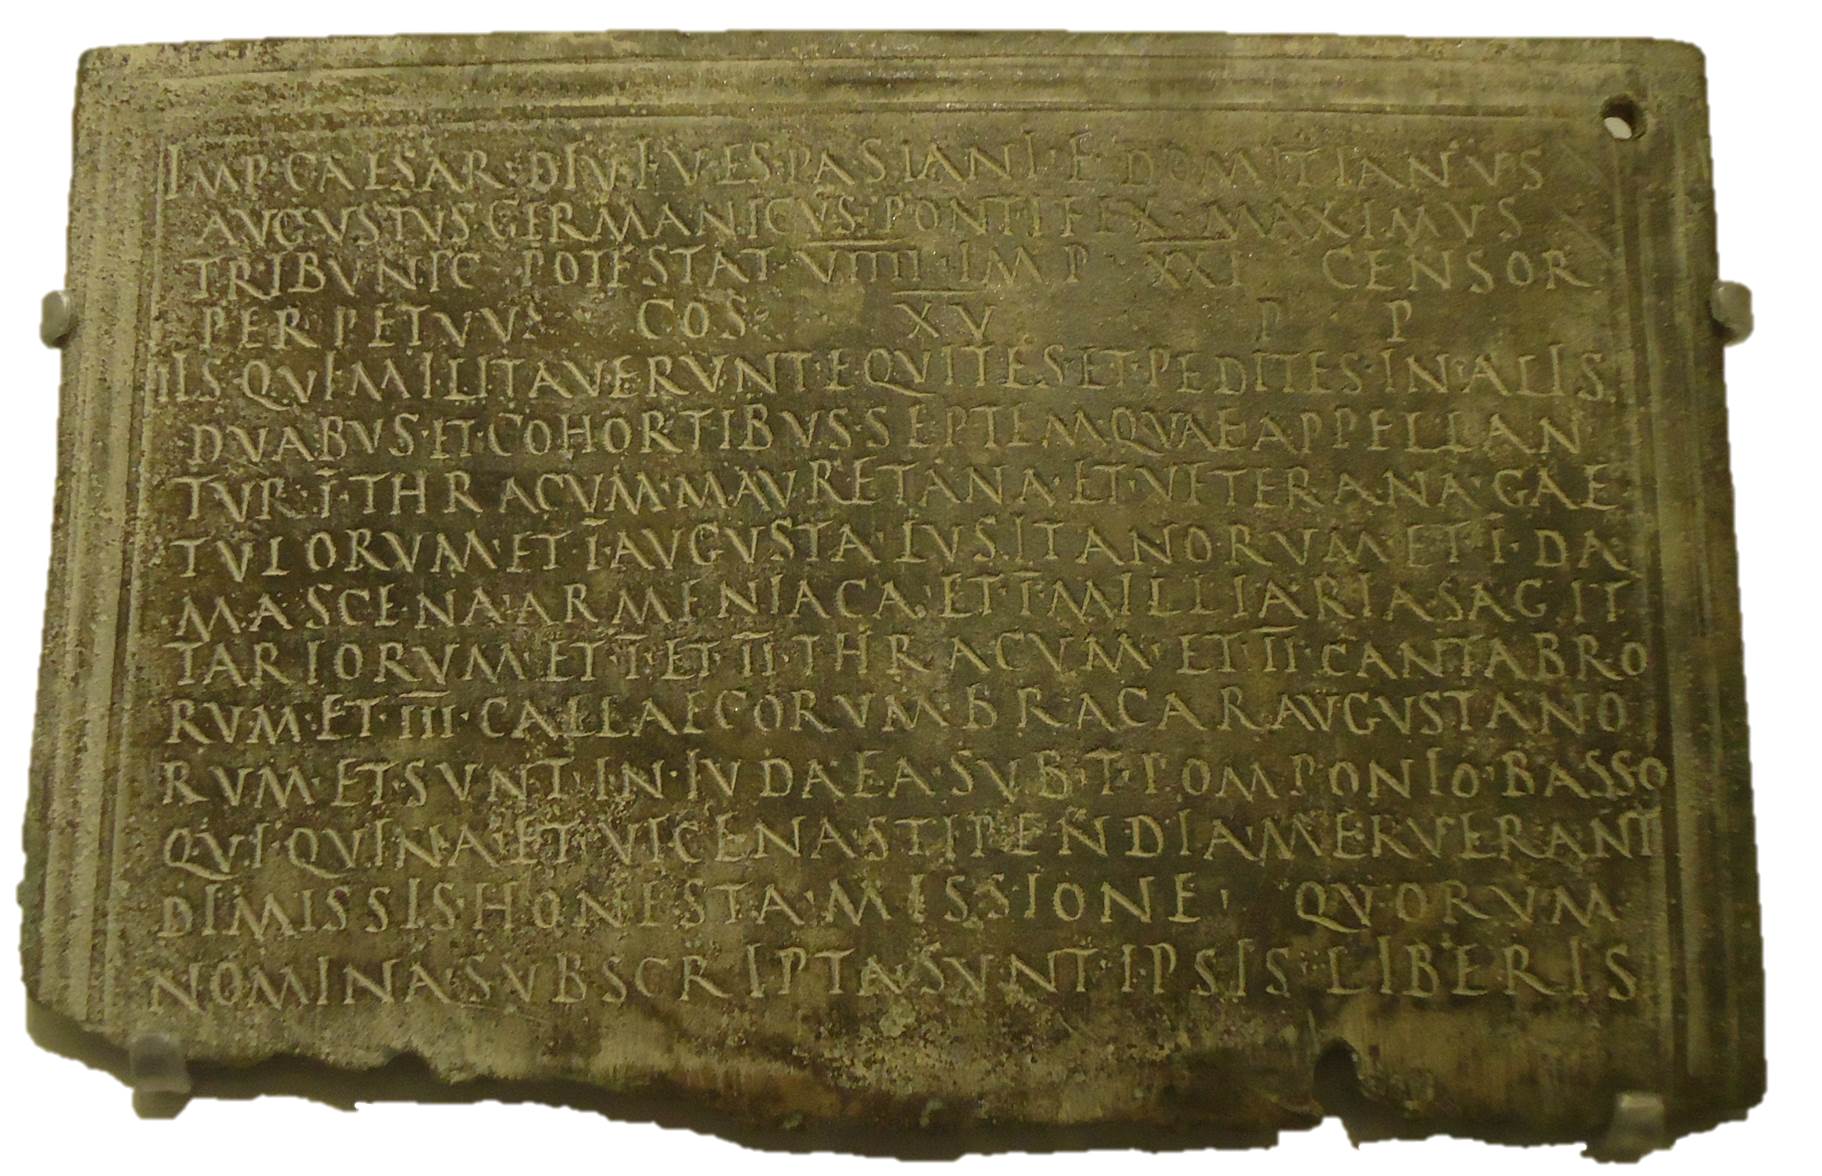 IMP·CAESAR·DIVI·VESPASIANI·F·DOMITIANVS
AVGVSTVS·GERMANICVS·PONTIFEX·MAXIMVS
TRIBVNIC·POTESTAT·VIIII·IMP·XXI CENSOR
PERPETVVS· COS· XV P P
IIS·QVI·MILITAVERVNT·EQVITES·ET·PEDITES·IN·ALIS
DVABVS·ET·COHORTIBVS·SEPTEM·QVAE·APPELLAN
TVR·I·THRACVM·MAVRETANA·ET·VETERANA·GAE
TVLORVM·ET·I·AVGVSTA·LVSITANORVM·ET·I·DA
MASCENA·ARMENIACA·ET·I·MILLIARIA·SAGIT
TARIORVM·ET·I·ET·II·THRACVM·ET·II·CANTABRO
RVM·ET·III·CALLAECORVM·BRACARAVGVSTANO
RVM·ET·SVNT·IN·IVDAEA·SVB·T·POMPONIO·BASSO
QVI·QVINA·ET·VICENA·STIPENDIA·MERVERANT
DIMISSIS·HONESTA·MISSIONE· QVORVM
NOMINA·SVBSCRIPTA·SVNT·IPSIS·LIBERIS